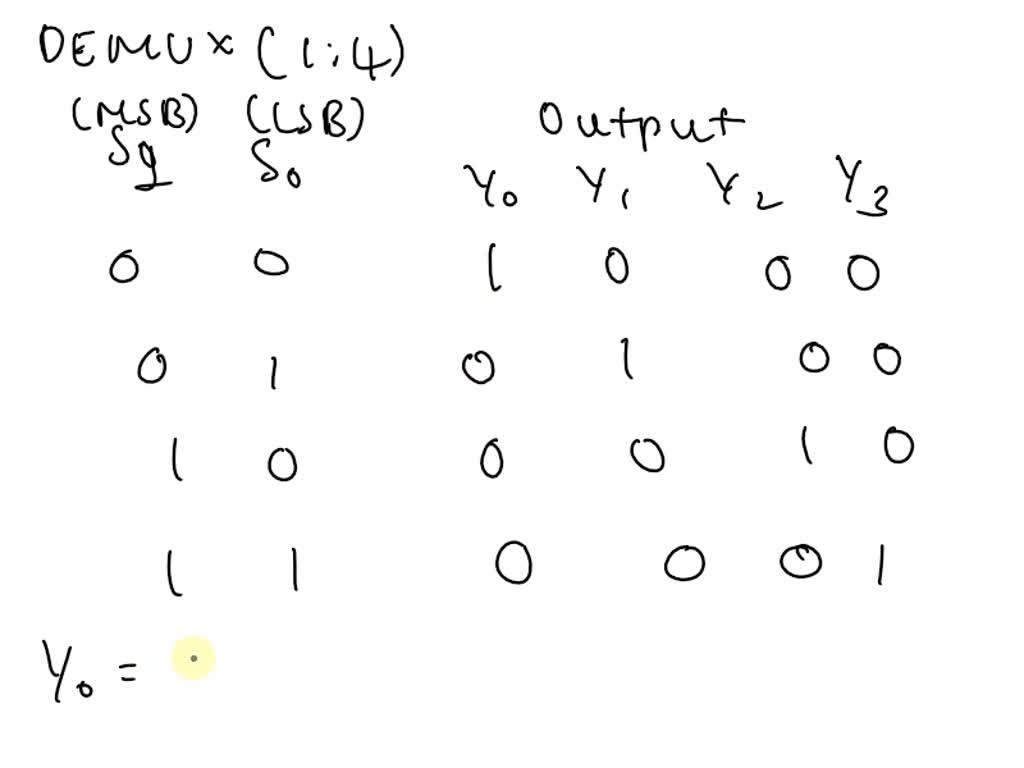 DEMUX (1:4)
(MSB) (LSB) Output
S1 S0 Y0 Y1 Y2 Y3
0 0 1 0 0 0
0 1 0 1 0 0
1 0 0 0 1 0
1 1 0 0 0 1
Y0 =